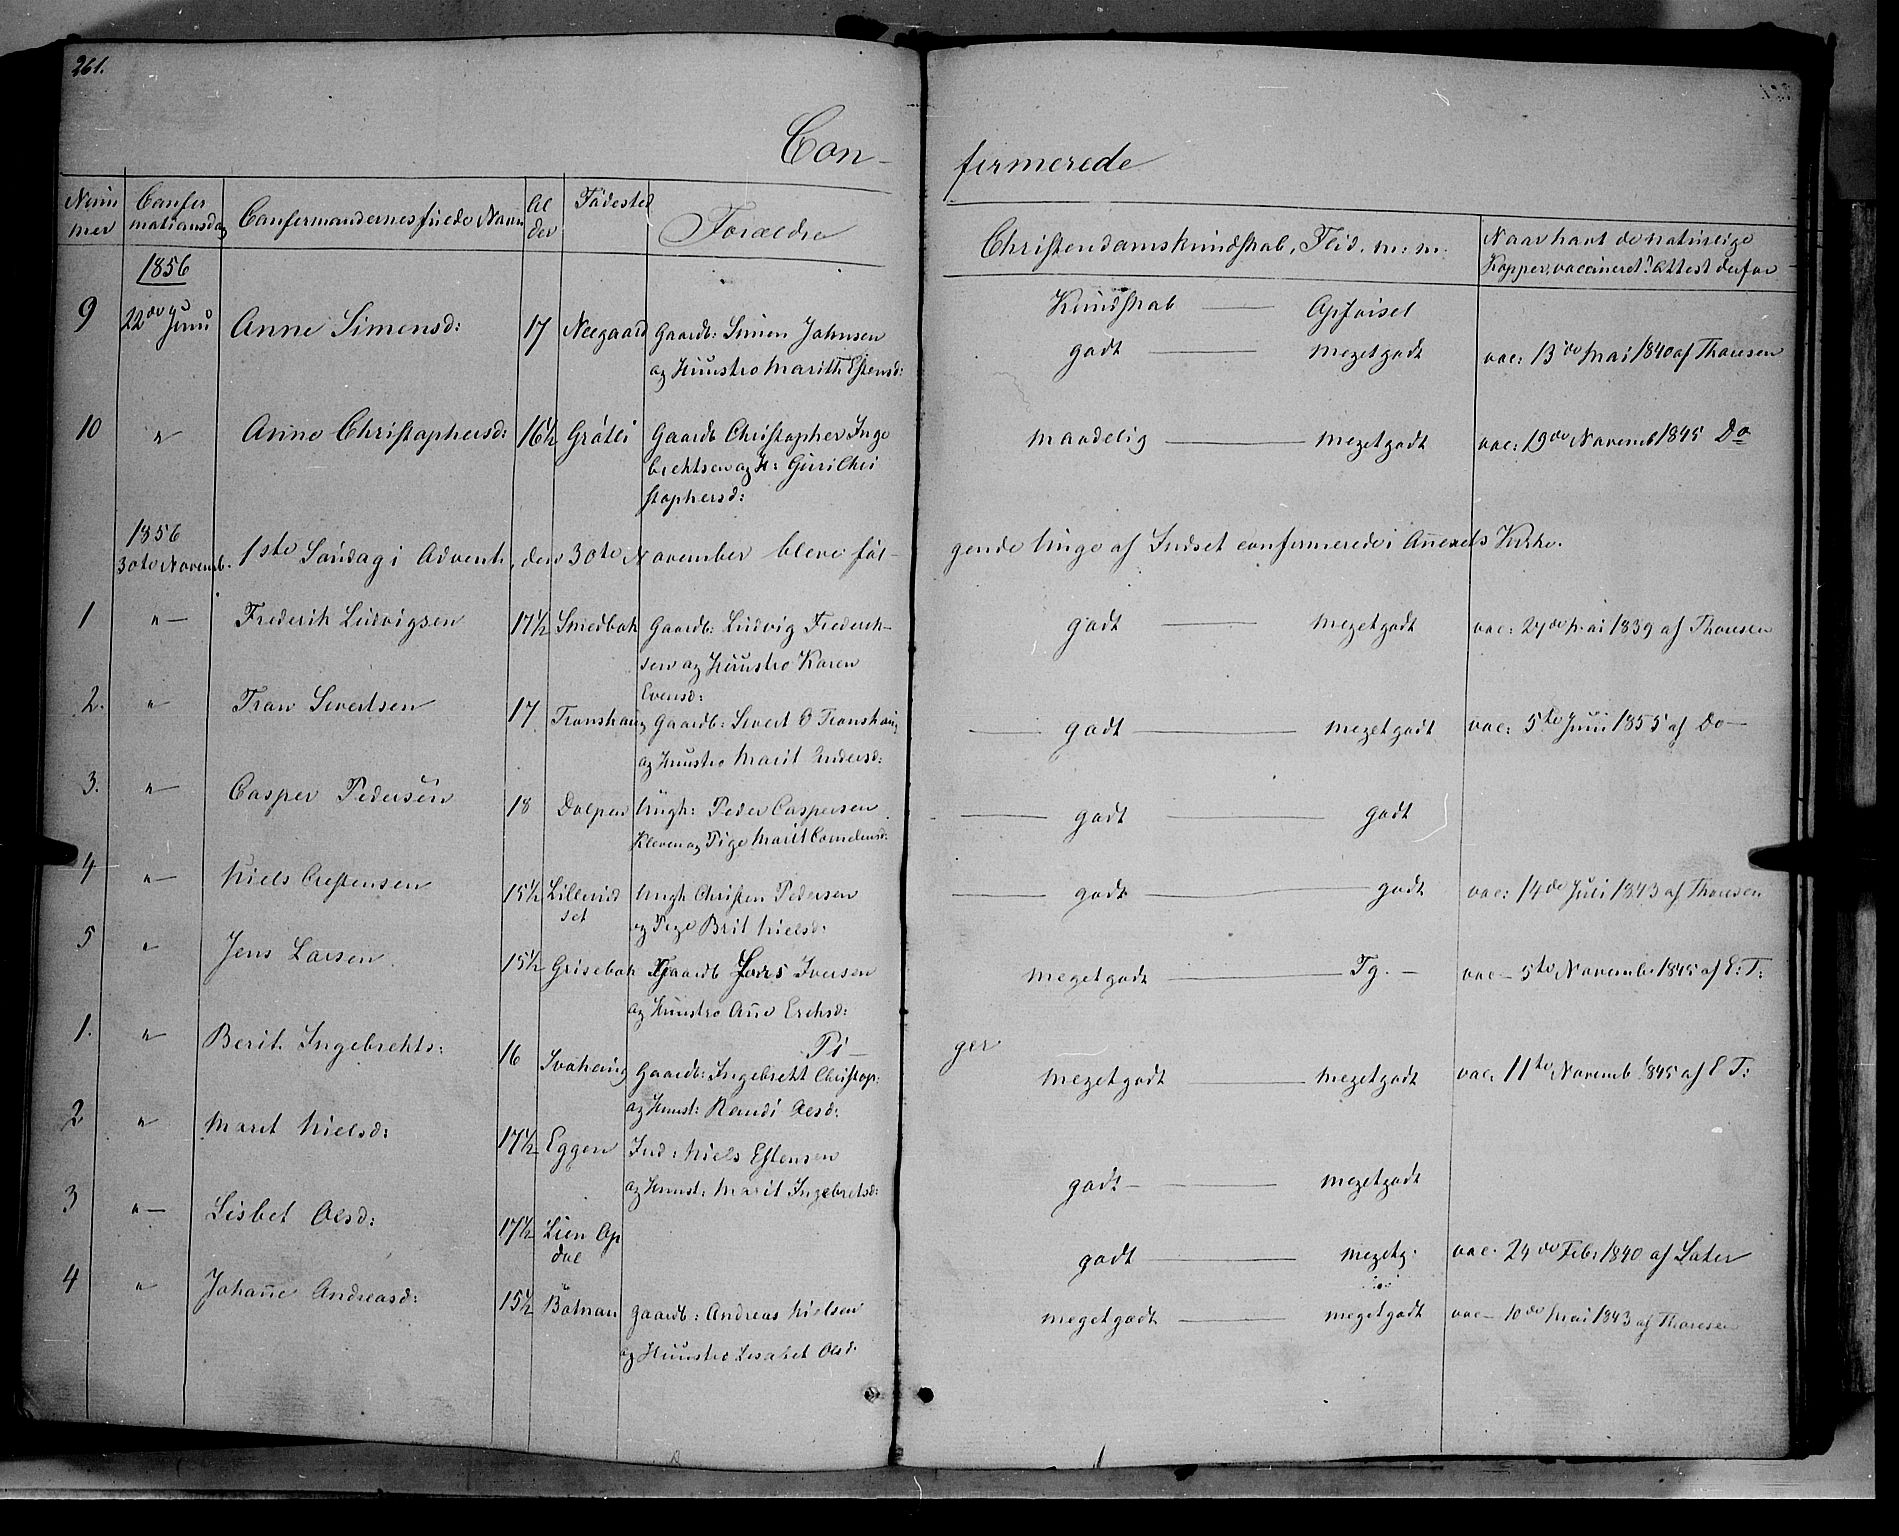 261.
Con- firmerede
Num mer | Confer mationsdag | Confermandernes fulde Navn | Al der | Födested | Forældre | Christendomskundskab, Flid. m: m: | Naar havt de naturlige Kopper, vaccineret? Attest derfor
1856
Kundskab — Opförsel
9 | 22de Juni | Anne Simensd: | 17 | Neegaard | Gaardb: Simen Johnsen
og Huustro Marith Estensd: | godt — megetgodt | vac: 13de Mai 1840 af Thoresen
10 | " | Anne Christophersd: | 16½ | Grötli | Gaardb Christopher Inge
brektsen og H: Guri Chri
stophersd: | maadelig — megetgodt | vac: 19de Novemb 1845 Do
1856
30te Novemb. | 1ste Søndag i Advent, den 30te November bleve föl- gende Unge af Indset confirmerede i Annexets Kirke.
1 | "— | Frederik Ludvigsen | 17½ | Smedbak | Gaardb: Ludvig Frederik-
sen og Huustro Karen
Evensd: | godt — megetgodt | vac: 24de Mai 1839 af Thoresen
2. | " | Tron Sivertsen | 17 | Tronshaug | Gaardb: Sivert O Tronshaug
og Huustro Marit Andersd: | — godt — megetgodt | vac: 5te Juni 1855 af Do—
3. | "— | Casper Pedersen | 18 | Dalpen | Ungk: Peder Caspersen
Kleven og Pige Marit Cornelensd: | — godt — godt
4 | "— | Niels Crestensen | 15½ | Lillenid
set | Ungk Christen Pedersen
og Pige Brit Nielsd: | — godt — godt | vac: 14de Juli 1843 af Thoresen
5 | " | Jens Larsen | 15½ | Grisebak | Gaardb Lars Iversen
og Huustro Anne Ericksd: | megetgodt — Tg. — | vac— 5te Novemb. 1845 af E: T:
Pi- ger
1. | " | Berit Ingebrekts: | 16 | Ivahaug | Gaardb: Ingebrekt Christop:
og Huust: Randi Olsd: | megetgodt — megetgodt | vac. 11te Novemb 1845 af E T:
2 | " | Marit Nielsd: | 17½ | Eggen | Ind: Niels Estensen
og Huust: Marit Ingebretsd: | godt — megetgodt
3 | "— | Lisbet Olsd: | 17½ | Lien Op
dal | godt — megetg. | vac. 24de Feb: 1840 af Sater
4 | " | Johanne Andreasd: | 15½ | Bötnan | gaardb: Andreas Nielsen
og Huustro Lisabet Olsd. | megetgodt — megetgodt | vac— 10de Mai 1843 af Thoresen